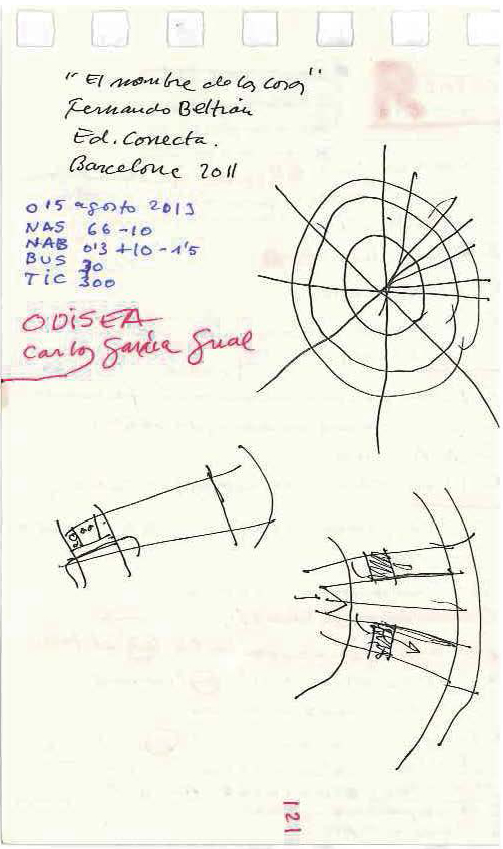 "El nombre de las cosas"
Fernando Beltrán
Ed. Conecta.
Barcelona 2011
015 agosto 2013
NAS 66-10
NAB 0'3 +10 -1'5
BUS 30
TIC 300
ODISEA
Carlos García Gual
121